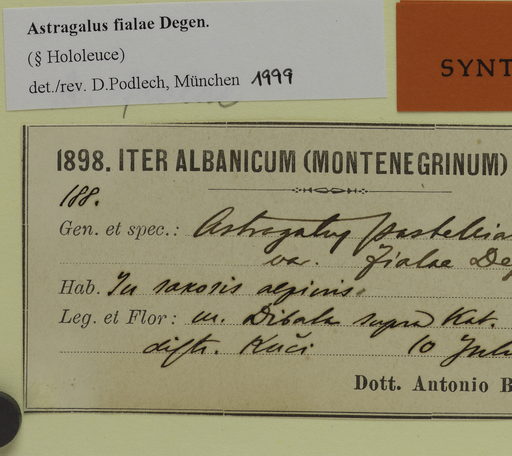 Astragalus fialae Degen.
(§ Hololeuce)
det./rev. D.Podlech, München 1999
SYNT
1898. ITER ALBANICUM (MONTENEGRINUM)
188.
Gen. et spec.: Astragalus
var. fialae Deg
Hab. In saxosis alpinis.
Leg. et Flor: m. Dibala supra Kat.
distr. Kuči 10 Jul
Dott. Antonio B